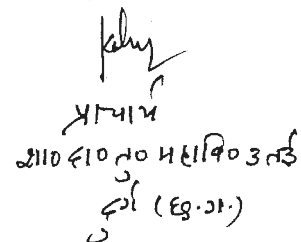 प्राचार्य
शा० दा० तु० महावि० उतई
दुर्ग (छ.ग.)